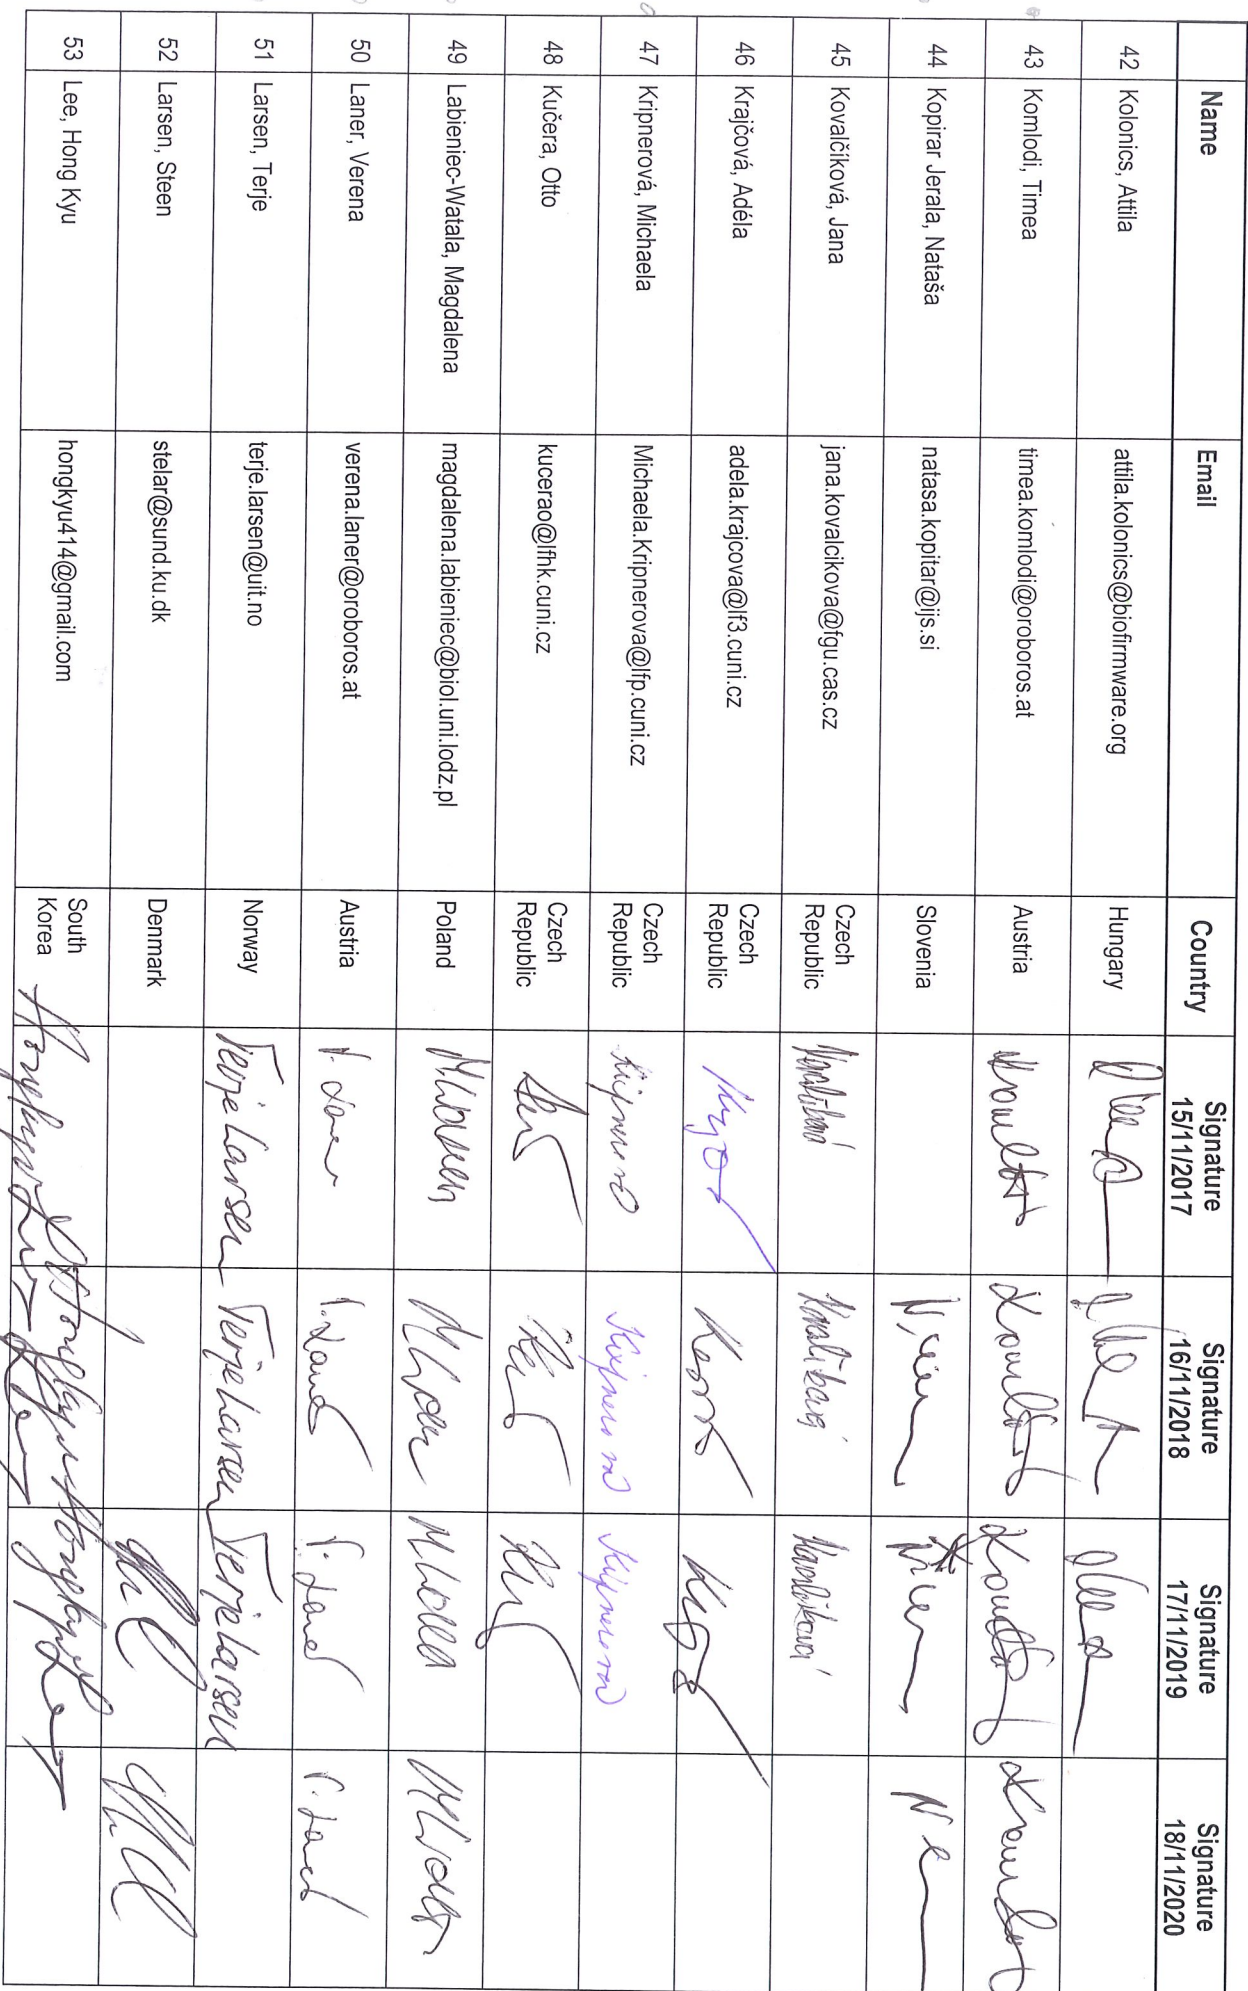 Name Email Country Signature 15/11/2017 Signature 16/11/2018 Signature 17/11/2019 Signature 18/11/2020
42 Kolonics, Attila attila.kolonics@biofirmware.org Hungary
43 Komlodi, Timea timea.komlodi@oroboros.at Austria
44 Kopirar Jerala, Nataša natasa.kopitar@ijs.si Slovenia
45 Kovalčíková, Jana jana.kovalcikova@fgu.cas.cz Czech Republic
46 Krajčová, Adéla adela.krajcova@lf3.cuni.cz Czech Republic
47 Kripnerová, Michaela Michaela.Kripnerova@lfp.cuni.cz Czech Republic
48 Kučera, Otto kucerao@lfhk.cuni.cz Czech Republic
49 Labieniec-Watala, Magdalena magdalena.labieniec@biol.uni.lodz.pl Poland
50 Laner, Verena verena.laner@oroboros.at Austria V. Laner V. Laner V. Laner V. Laner
51 Larsen, Terje terje.larsen@uit.no Norway Terje Larsen Terje Larsen Terje Larsen
52 Larsen, Steen stelar@sund.ku.dk Denmark
53 Lee, Hong Kyu hongkyu414@gmail.com South Korea